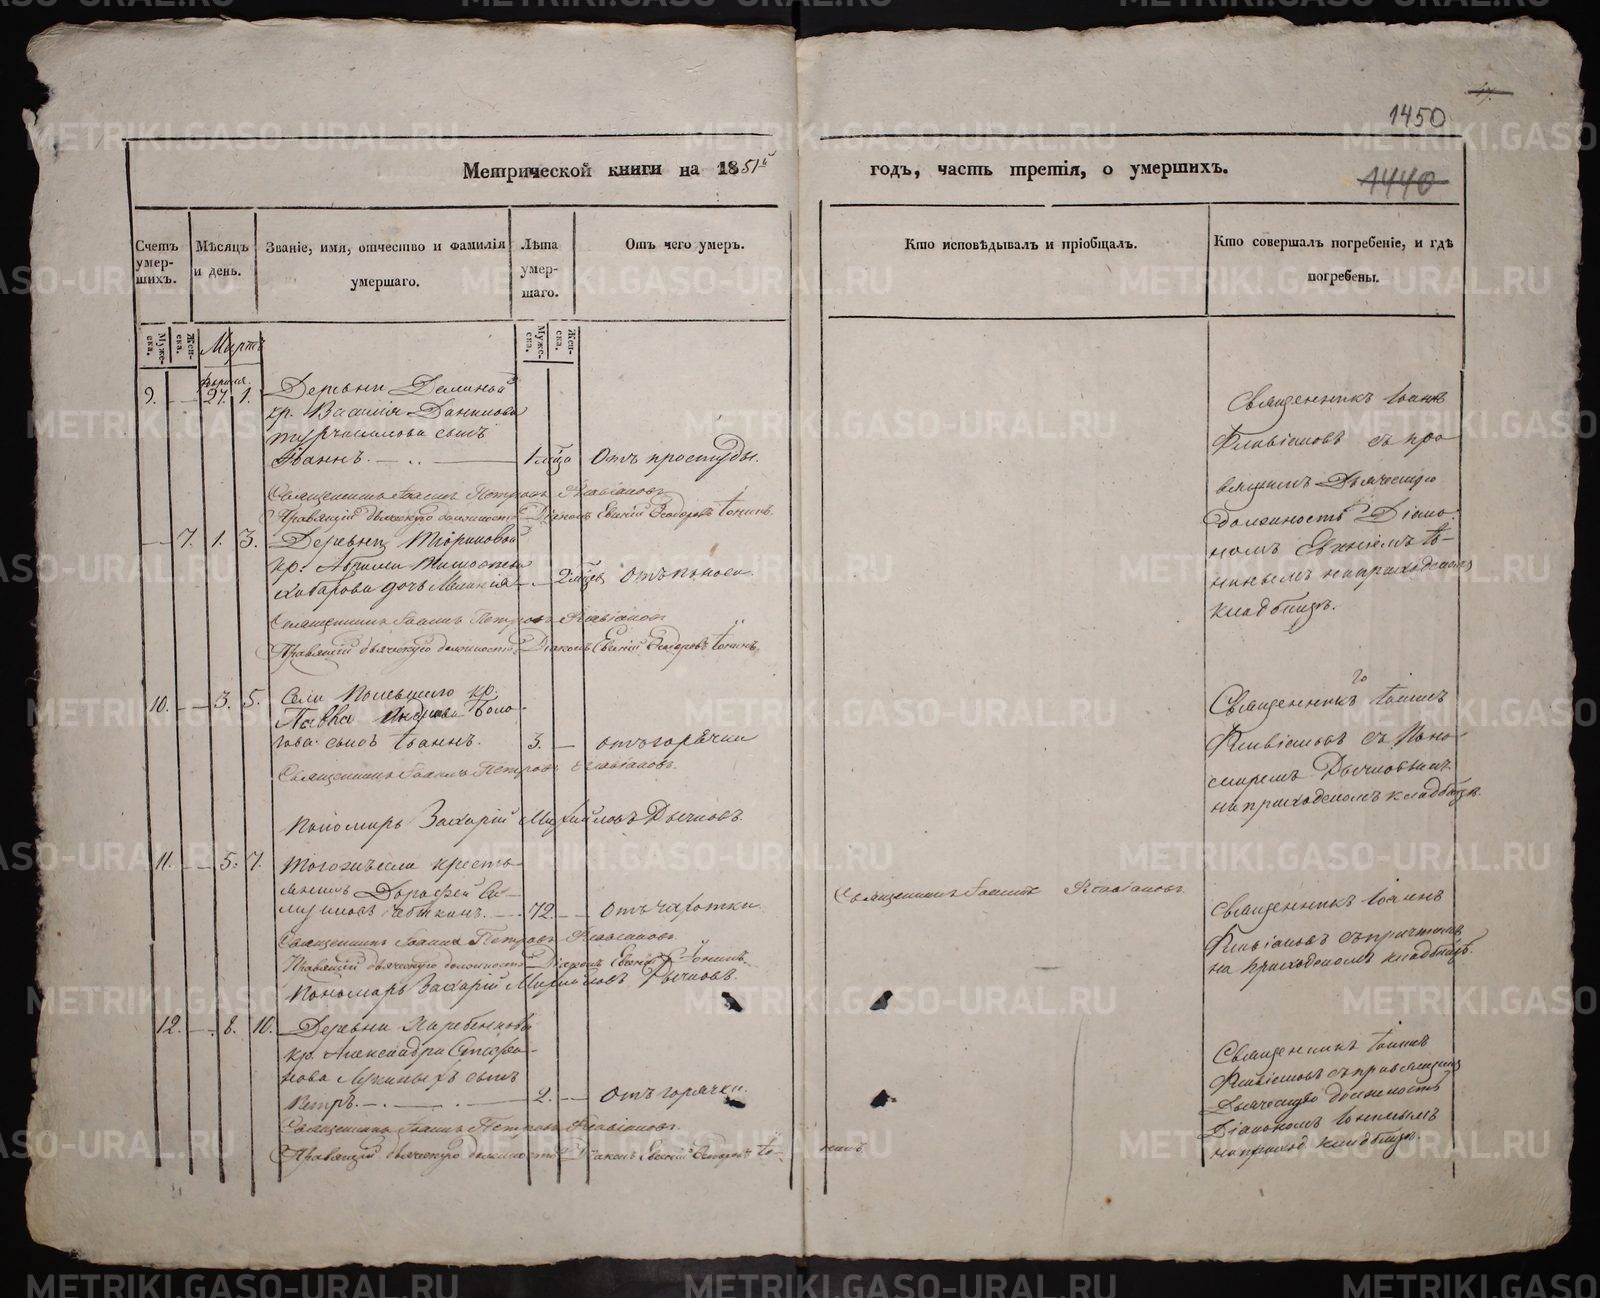 1450
1440
Метрической книги на 1851й
годъ, часть третія, о умершихъ.
Счетъ умер-шихъ.
Мѣсяцъ и день.
Званіе, имя, отчество и фамилія умершаго.
Лѣта умер-шаго.
Отъ чего умеръ.
Кто исповѣдывалъ и пріобщалъ.
Кто совершалъ погребеніе, и гдѣ погребены.
Муже-ска.
Жен-ска.
Муже-ска.
Жен-ска.
Мартъ
Февраля
9. 27. 1. Деревни
кр. Василія Данилова
сынъ
Іоаннъ. 1 мѣца Отъ простуды.
Священникъ Іоаннъ Петровъ Флавіановъ
Правящій дьяческую должность Діаконъ Евгеній Ѳеодоровъ Іонинъ.
Священникъ Іоаннъ
Флавіановъ съ пра
вящимъ Дьяческую
должность Діако-
номъ Евгеніемъ Іо-
нинымъ на приходскомъ
кладбищѣ.
7. 1. 3. Деревни
кр.
дочь Меланія 2 мѣсц. отъ поноса.
Священникъ Іоаннъ Петровъ Флавіановъ
Правящій дьяческую должность Діаконъ Евгеній Ѳеодоровъ Іонинъ.
10. 3. 5. Села кр.
Павла
сынъ Іоаннъ. 3. отъ горячки
Священникъ Іоаннъ Петровъ Флавіановъ.
Пономарь Захарій Михайловъ Дьячковъ.
Священникъ Іоаннъ
Флавіановъ съ Поно
маремъ Дьячковымъ
на приходскомъ кладбищѣ.
11. 5. 7. Тогожъ села кресть
янинъ Дорофей
72. Отъ чахотки
Священникъ Іоаннъ Петровъ Флавіановъ.
Правящій дьяческую должность Діаконъ Евгеній Ѳ. Іонинъ.
Пономарь Захарій Михайловъ Дьячковъ.
Священникъ Іоаннъ Флавіановъ
Священникъ Іоаннъ
Флавіановъ съ причтомъ
на приходскомъ кладбищѣ.
12. 8. 10. Деревни
кр. Александра Стефа-
нова сынъ
Петръ. 2. Отъ горячки.
Священникъ Іоаннъ Петровъ Флавіановъ.
Правящій дьяческую должность Діаконъ Евгеній Ѳеодоровъ Іо-нинъ.
Священникъ Іоаннъ
Флавіановъ съ правящимъ
Дьяческую должность
Діакономъ Іонинымъ
на приход кладбищѣ.
METRIKI.GASO-URAL.RU